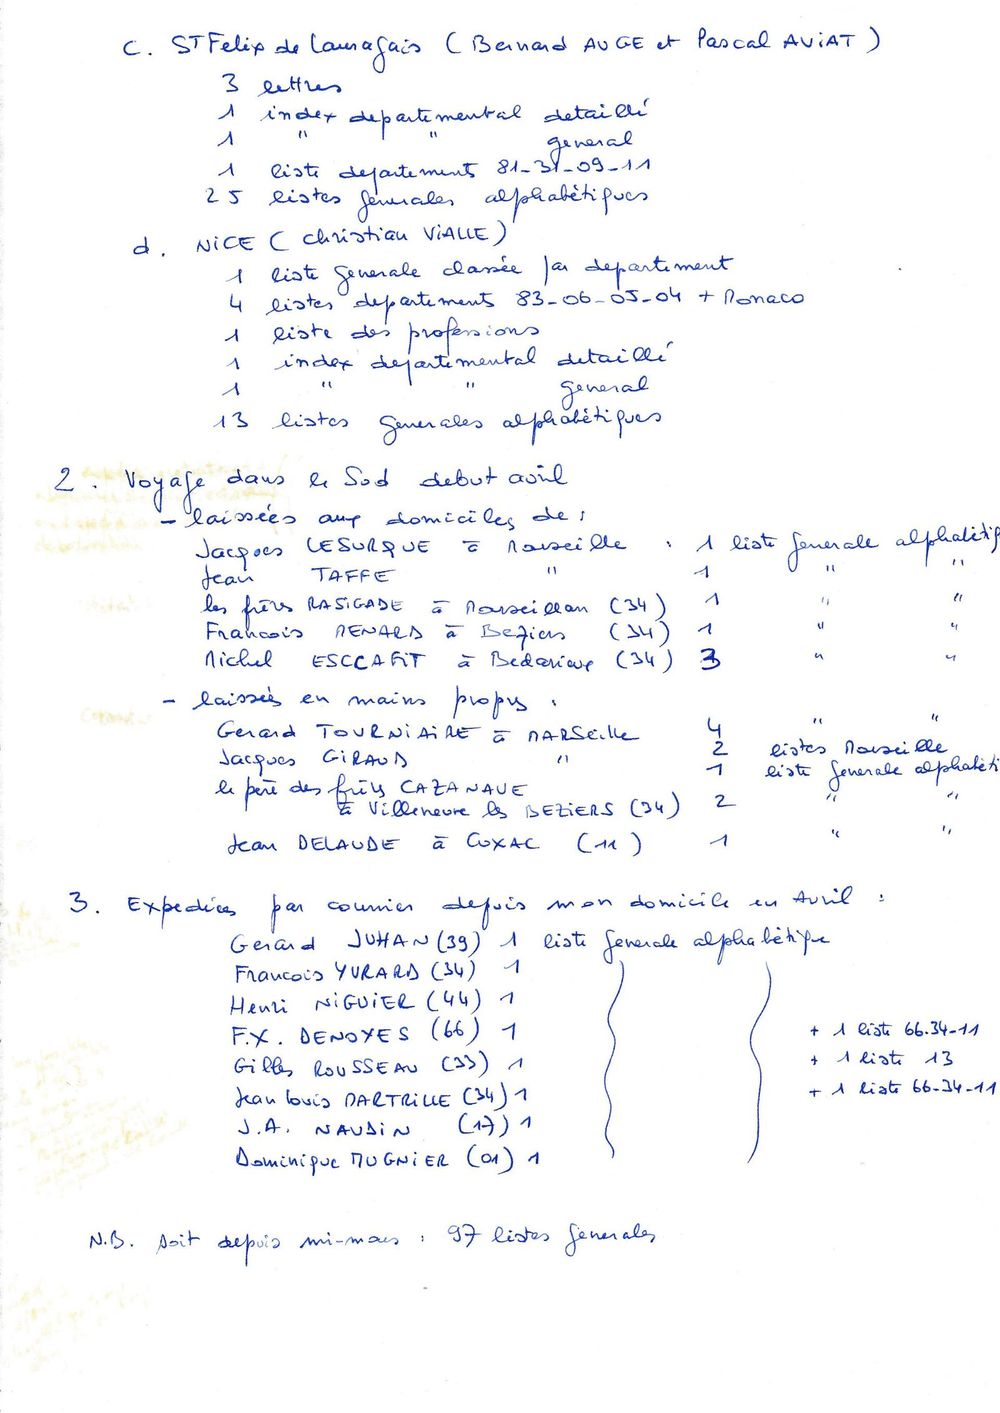 c. ST Felix de Lauragais ( Bernard AUGE et Pascal AVIAT )
3 lettres
1 index departemental detaillé
1 " " general
1 liste departements 81-31-09-11
25 listes générales alphabétiques
d. NICE ( Christian VIALLE )
1 liste generale classée par departement
4 listes departements 83-06-05-04 + Monaco
1 liste des professions
1 index departemental detaillé
1 " " general
13 listes generales alphabétiques
2. Voyage dans le Sud debut avril
- laissées aux domiciles de :
Jacques LESURQUE à Marseille : 1 liste generale alphabétiq
Jean TAFFE " 1 " "
les frères RASIGADE à Marseillan (34) 1 " "
Francois RENARD à Beziers (34) 1 " "
Michel ESCCAFIT à Bedarieux (34) 3 " "
- laissées en mains propres :
Gerard TOURNIAIRE à MARSEILLE 4 " "
Jacques GIRAUD " 2 listes Marseille
1 liste generale alphabéti
le père des frères CAZANAVE
à Villeneuve les BEZIERS (34) 2 " "
Jean DELAUDE à CUXAC (11) 1 " "
3. Expediées par courrier depuis mon domicile en Avril :
Gerard JUHAN (39) 1 liste generale alphabétique
Francois YVRARD (34) 1
Henri NIGUIER (44) 1
F.X. DENOYES (66) 1 + 1 liste 66.34-11
Gilles ROUSSEAU (33) 1 + 1 liste 13
Jean Louis MARTRILLE (34) 1 + 1 liste 66-34-11
J.A. NAUDIN (17) 1
Dominique MUGNIER (01) 1
N.B. Soit depuis mi-mars : 97 listes generales